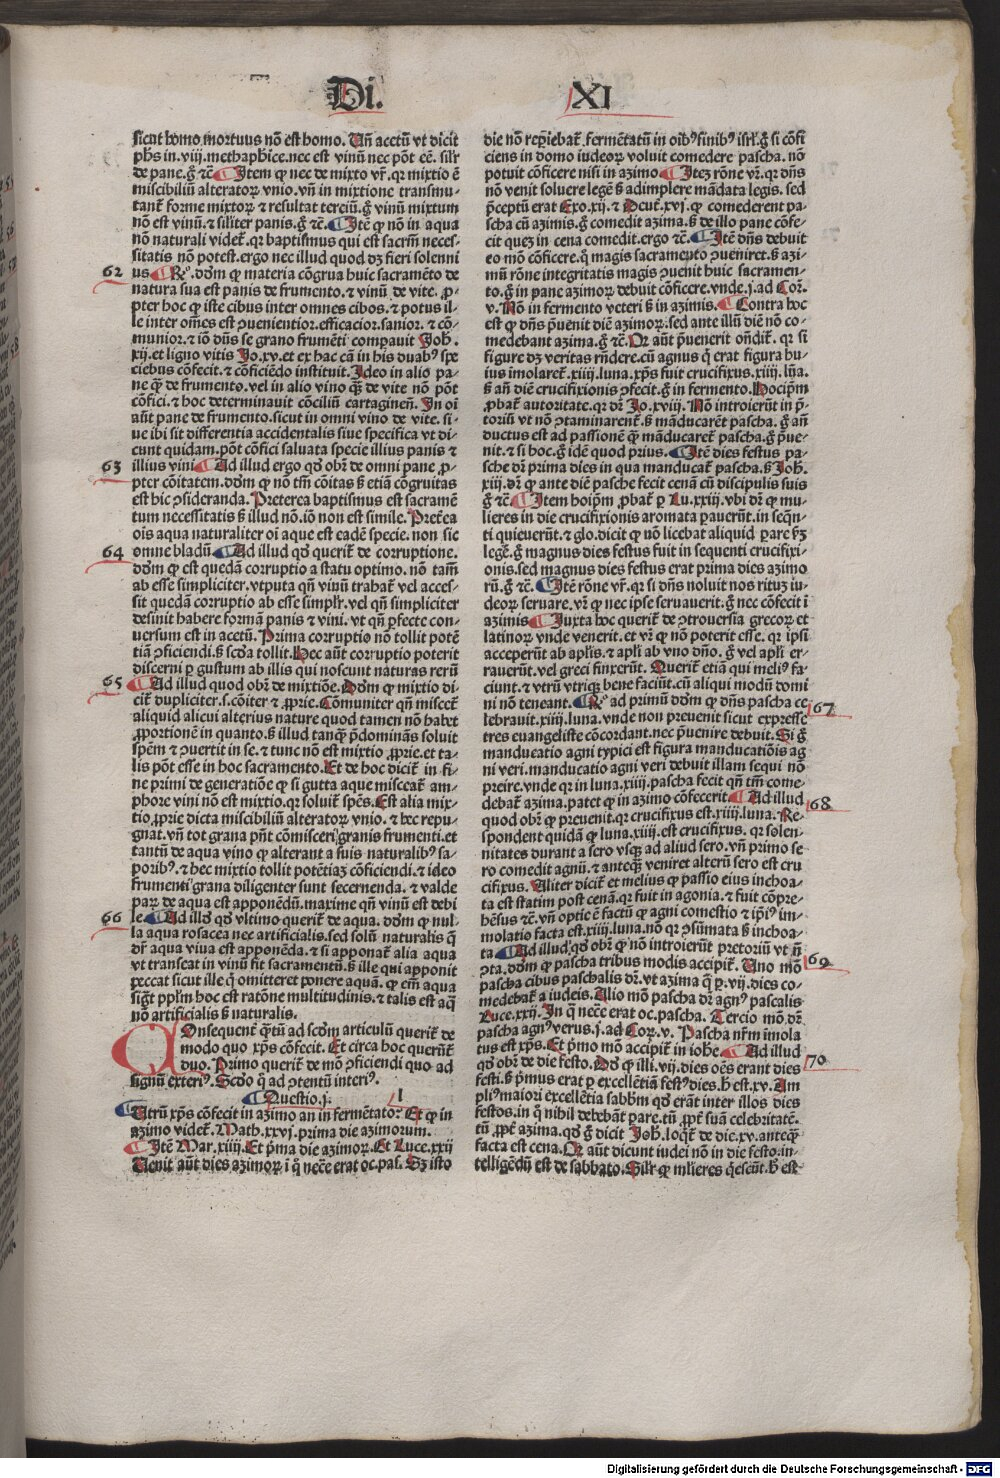 Di. XI
sicut homo mortuus nō est homo. Uñ acetū vt dicit
phs in.viij.methaphice.nec est vinū nec pōt eē. silr
de pane.g̊ ⁊c̄ Item ꝙ nec de mixto vr̄. qr mixtio ē
miscibiliū alteratoꝝ vnio. vn̄ in mixtione transmu-
tant̄ forme mixtoꝝ ⁊ resultat terciū. g̊ vinū mixtum
nō est vinū. ⁊ siliter panis. g̊ ⁊c̄. Itē ꝙ nō in aqua
nō naturali videt̄. qr baptismus qui est sacrm̄ neces-
sitatis nō potest. ergo nec illud quod dꝫ fieri solenni
62 us R̊. dōm ꝙ materia cōgrua huic sacramēto de
natura sua est panis de frumento. ⁊ vinū de vite. ꝓ-
pter hoc ꝙ iste cibus inter omnes cibos. ⁊ potus il-
le inter omēs est ꝯuenientior. efficacior. sanior. ⁊ cō-
munior. ⁊ iō dn̄s se grano frumēti comparauit Joh.
xij. et ligno vitis Jo. xv. et ex hac cā in his duabꝰ spe
ciebus cōfecit. ⁊ cōficiēdo instituit. Ideo in alio pa-
ne q̄ de frumento. vel in alio vino q̄ de vite nō pōt
cōfici. ⁊ hoc determinauit cōciliū cartaginen̄. In oī
aūt pane de frumento. sicut in omni vino de vite. si-
ue ibi sit differentia accidentalis siue specifica vt di-
cunt quidam. pōt cōfici saluata specie illius panis ⁊
63 illius vini Ad illud ergo qd̓ obr̄ de omni pane ꝓ-
pter cōitatem. dōm ꝙ nō tm̄ cōitas s̓ etiā cōgruitas
est hic ꝯsideranda. Preterea baptismus est sacramē
tum necessitatis s̓ illud nō. iō non est simile. Pret̄ea
oīs aqua naturaliter oī aque est eadē specie. non sic
64 omne bladū Ad illud qd̓ querit̄ de corruptione.
dōm ꝙ est quedā corruptio a statu optimo. nō tam̄
ab esse simpliciter. vtputa qn̄ vinū trahat̄ vel acces-
sit quedā corruptio ab esse simplr̄. vel qn̄ simpliciter
desinit habere formā panis ⁊ vini. vt qn̄ ꝑfecte con-
uersum est in acetū. Prima corruptio nō tollit potē
tiā ꝯficiendi. s̓ scd̓a tollit. Hec aūt corruptio poterit
discerni ꝑ gustum ab illis qui noscunt naturas rerū
65 Ad illud quod obr̄ de mixtiōe. Dōm ꝙ mixtio di-
cit̄ dupliciter. s. cōiter ⁊ ꝓprie. Cōmuniter qn̄ miscet̄
aliquid alicui alterius nature quod tamen nō habet
ꝓportionē in quanto. s̓ illud tanq̄ p̄dominās soluit
spēm ⁊ ꝯuertit in se. ⁊ tunc nō est mixtio ꝓprie. et ta-
lis pōt esse in hoc sacramento. Et de hoc dicit̄ in fi-
ne primi de generatiōe ꝙ si gutta aque misceat̄ am-
phore vini nō est mixtio. qr soluit̄ spēs. Est alia mix-
tio. ꝓprie dicta miscibiliū alteratoꝝ vnio. ⁊ hec repu-
gnat. vn̄ tot grana pn̄t cōmisceri granis frumenti. et
tantū de aqua vino ꝙ alterant a suis naturalibꝰ sa-
poribꝰ. ⁊ hec mixtio tollit potētiaꝫ cōficiendi. ⁊ ideo
frumenti grana diligenter sunt secernenda. ⁊ valde
paꝝ de aqua est apponēdū. maxime qn̄ vinū est debi
66 le. Ad illd̓ qd̓ vltimo querit̄ de aqua. dōm ꝙ nul-
la aqua rosacea nec artificialis. sed solū naturalis q̄
dr̄ aqua viua est apponēda. ⁊ si apponat̄ alia aqua
vt transeat in vinū fit sacramentū. s̓ ille qui apponit
peccat sicut ille q̓ omitteret ponere aquā. ꝙ em̄ aqua
sigt̄ pplm̄ hoc est ratōne multitudinis. ⁊ talis est aq̄
nō artificialis s̓ naturalis.
Consequent̄ q̄tū ad scd̓m articulū querit̄ de
modo quo xp̄s cōfecit. Et circa hoc querūt̄
duo. Primo querit̄ de mō ꝯficiendi quo ad
signū exteriꝰ. Scd̓o q̄ ad ꝯtentū interiꝰ.
Questio. j.
Utrū xp̄s cōfecit in azimo an in fermētato: Et ꝙ in
azimo videt̄. Math. xxvj. prima die azimorum.
Itē Mar. xiiij. Et p̄ma die azimoꝝ. Et Luce. xxij
Uenit aūt dies azimoꝝ i q̄ nec̄e erat oc. pas̄. Sꝫ isto
die nō rep̄iebat̄ fermētatū in oībꝰ finibꝰ isrl̓. g̊ si cōfi
ciens in domo iudeoꝝ voluit comedere pascha. nō
potuit cōficere nisi in azimo Iteꝫ rōne vr̄. qr dn̄s
nō venit soluere legē s̓ adimplere mādata legis. sed
p̄ceptū erat Exo. xij. ⁊ Deut̄. xvj. ꝙ comederent pa-
scha cū azimis. g̊ comedit azima. s̓ de illo pane cōfe-
cit quez in cena comedit. ergo ⁊c̄. Itē dn̄s debuit
eo mō cōficere. q̓ magis sacramento ꝯueniret. s̓ azi-
mū rōne integritatis magis ꝯuenit huic sacramen-
to. g̊ in pane azimoꝝ debuit cōficere. vnde. j. ad Cor̄.
v. Nō in fermento veteri s̓ in azimis. Contra hoc
est ꝙ dn̄s p̄uenit diē azimoꝝ. sed ante illū diē nō co-
medebant azima. g̊ ⁊c̄. Qr aūt p̄uenerit on̄dit̄. qr si
figure dꝫ veritas rn̄dere. cū agnus q̄ erat figura hu-
ius imolaret̄. xiiij. luna. xp̄s fuit crucifixus. xiiij. lūa.
s̓ añ diē crucifixionis ꝯfecit. g̊ in fermento. Hocip̄m
ꝓbat̄ autoritate. qr dr̄ Jo. xviij. Nō introierūt in p̄-
toriū vt nō ꝯtaminarent̄. s̓ māducarēt pascha. g̊ añ
ductus est ad passionē q̄ māducaret̄ pascha. g̊ p̄ue-
nit. ⁊ si hoc. g̊ idē quod prius. Itē dies festus pa-
sche dr̄ prima dies in qua manducat̄ pascha. s̓ Joh.
xiij. dr̄ ꝙ ante diē pasche fecit cenā cū discipulis suis
g̊ ⁊c̄ Item hoip̄m ꝓbat̄ ꝑ Lu. xxiij. vbi dr̄ ꝙ mu-
lieres in die crucifixionis aromata parauerūt. in seq̄n-
ti quieuerūt. ⁊ glo. dicit ꝙ nō licebat aliquid parare p̄ꝫ
legē. g̊ magnus dies festus fuit in sequenti crucifixi-
onis. sed magnus dies festus erat prima dies azimo
rū. g̊ ⁊c̄. Itē rōne vr̄. qr si dn̄s noluit nos rituꝫ iu-
deoꝝ seruare. vr̄ ꝙ nec ipse seruauerit. g̊ nec cōfecit ī
azimis Iuxta hoc querit̄ de ꝯtrouersia grecoꝝ et
latinoꝝ vnde venerit. et vr̄ ꝙ nō poterit esse. qr ipsi
acceperūt ab apl̓is. ⁊ apl̓i ab vno dn̄o. g̊ vel apl̓i er-
rauerūt. vel greci finxerūt. Querit̄ etiā qui meliꝰ fa-
ciunt. ⁊ vtrū vtriqꝫ bene faciūt. cū aliqui modū domi
ni nō teneant. R̊. ad primū dōm ꝙ dn̄s pascha ce 67
lebrauit. xiiij. luna. vnde non preuenit sicut expresse
tres euangeliste cōcordant. nec p̄uenire debuit. Si g̊
manducatio agni typici est figura manducatiōis ag
ni veri. manducatio agni veri debuit illam sequi nō
preire. vnde qr in luna. xiiij. pascha fecit qn̄ tm̄ come-
debat̄ azima. patet ꝙ in azimo cōfecerit. Ad illud 68
quod obr̄ ꝙ preuenit. qr crucifixus est. xiiij. luna. Re-
spondent quidā ꝙ luna. xiiij. est crucifixus. qr solen-
nitates durant a sero vsqꝫ ad aliud sero. vn̄ primo se
ro comedit agnū. ⁊ anteqꝫ veniret alterū sero est cru
cifixus. Aliter dicit̄ et melius ꝙ passio eius inchoa-
ta est statim post cenā. qr fuit in agonia. ⁊ fuit cōpre-
hēsus ⁊c̄. vn̄ optie ē factū ꝙ agni comestio ⁊ ip̄iꝰ im-
molatio facta est. xiiij. luna. nō qr ꝯsūmata s̓ inchoa-
ta Ad illud qd̓ obr̄ ꝙ nō introierūt pretoriū vt n̄ 69
ꝯta. dōm ꝙ pascha tribus modis accipit̄. Uno mō
pascha cibus paschalis dr̄. vt azima q̄ ꝑ. vij. dies co-
medebat̄ a iudeis. Alio mō pascha dr̄ agnꝰ pascalis
Luce. xxij. In q̄ nec̄e erat oc. pascha. Tercio mō. dr̄
pascha agnꝰ verus. j. ad Cor̄. v. Pascha nr̄m īmola
tus est xp̄s. Et p̄mo mō accipit̄ in iohē Ad illud
qd̓ obr̄ de die festo. Dd̓ ꝙ illi. vij. dies oēs erant dies 70
festi. s̓ p̄mus erat ꝑ excellētiā festꝰ dies. h̓ est. xv. Am
pliꝰ maiori excellētia sabbm̄ qd̓ erāt inter illos dies
festos. in q̄ nihil debebāt parare. tū ꝓpt̄ suā celebritatē.
tū ꝓpt̄ azima. qd̓ g̊ dicit Joh. loqt̄ de die. xv. anteq̄
facta est cena. Qr aūt dicunt iudei nō in die festo. in-
telligēdū est de sabbato. Silr̄ ꝙ mlieres q̓eseūt. h̓ est
Digitalisierung gefördert durch die Deutsche Forschungsgemeinschaft - DFG